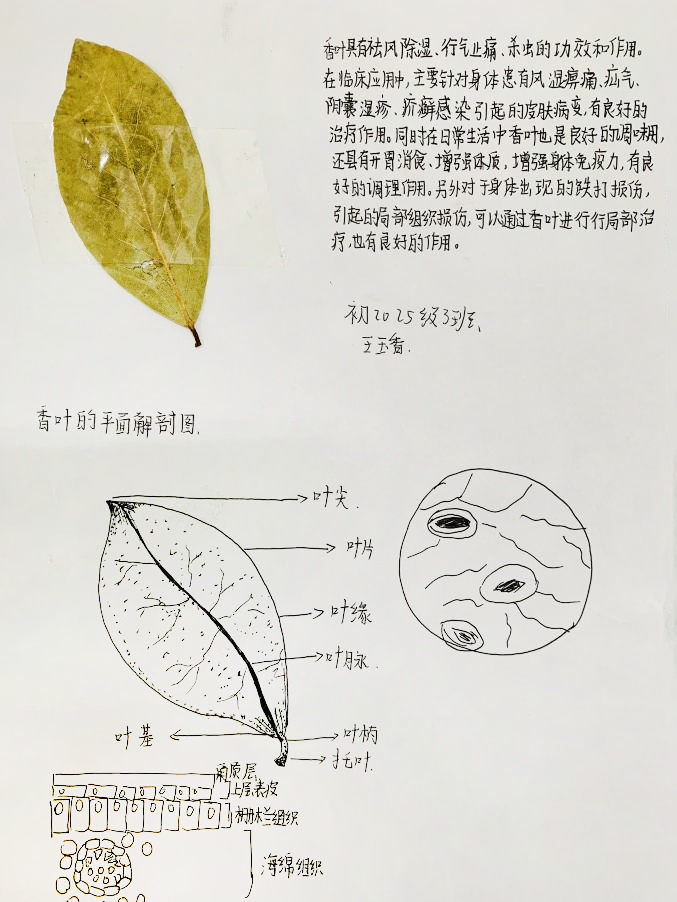 香叶具有祛风除湿、行气止痛、杀虫的功效和作用。
在临床应用中,主要针对身体患有风湿痹痛、疝气、
阴囊湿疹、疥癣感染引起的皮肤病变,有良好的
治疗作用。同时在日常生活中香叶也是良好的调味糊,
还具有开胃消食、增强体质,增强身体免疫力,有良
好的调理作用。另外对于身体出现的跌打损伤,
引起的局部组织损伤,可以通过香叶进行行局部治
疗,也有良好的作用。
初2025级3班
王玉香.
香叶的平面解剖图.
叶尖
叶片
叶缘
叶脉
叶基
叶柄
托叶
角质层
上层表皮
栅木兰组织
海绵组织